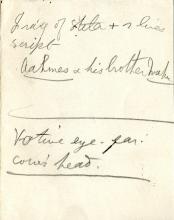 Frag of stela + 2 lines
script
Aahmes & his brother
Votive eye. far.
cow's head.